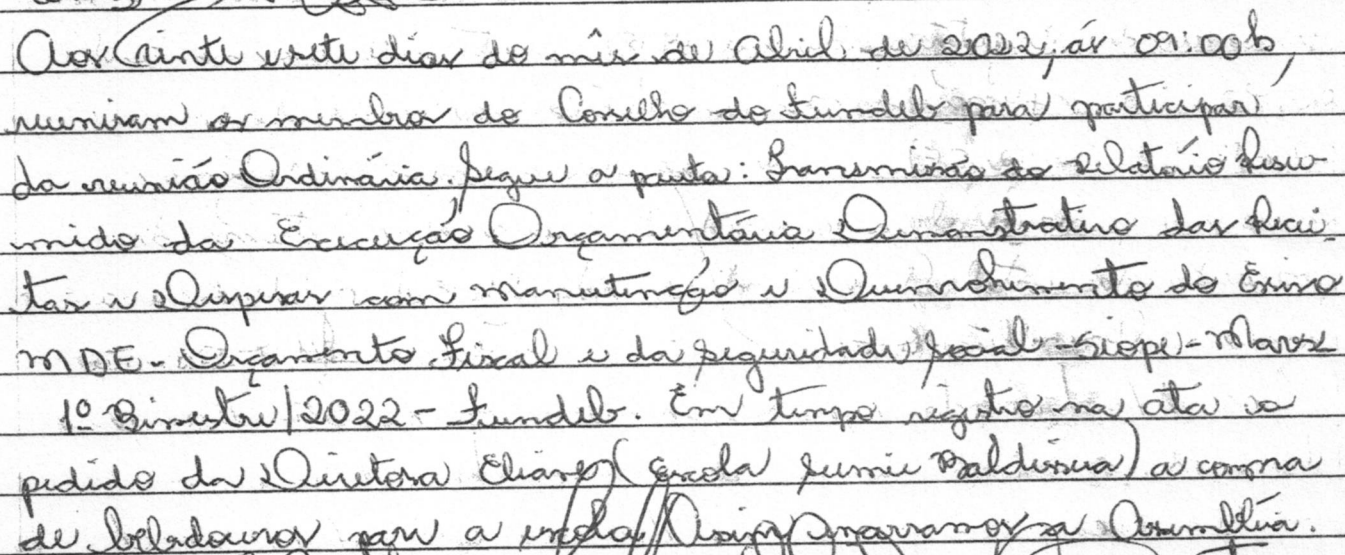 Aos vinte e sete dias do mês de Abril de 2022, ás 09:00h,
reuniram os membros do Conselho do Fundeb para participar
da reunião Ordinária. Segue a pauta: Transmissão do Relatório Resu-
mido da Execução Orçamentária Demonstrativo das Recei-
tas e Despesas com Manutenção e Desenvolvimento do Ensino
MDE - Orçamento Fiscal e da Seguridade Social - Siope -
1º Bimestre/2022 - Fundeb. Em tempo registro na ata o
pedido da Diretora Eliane (Escola Baldissera) a compra
de bebedouros para a escola. Assim encerramos a Assembléia.